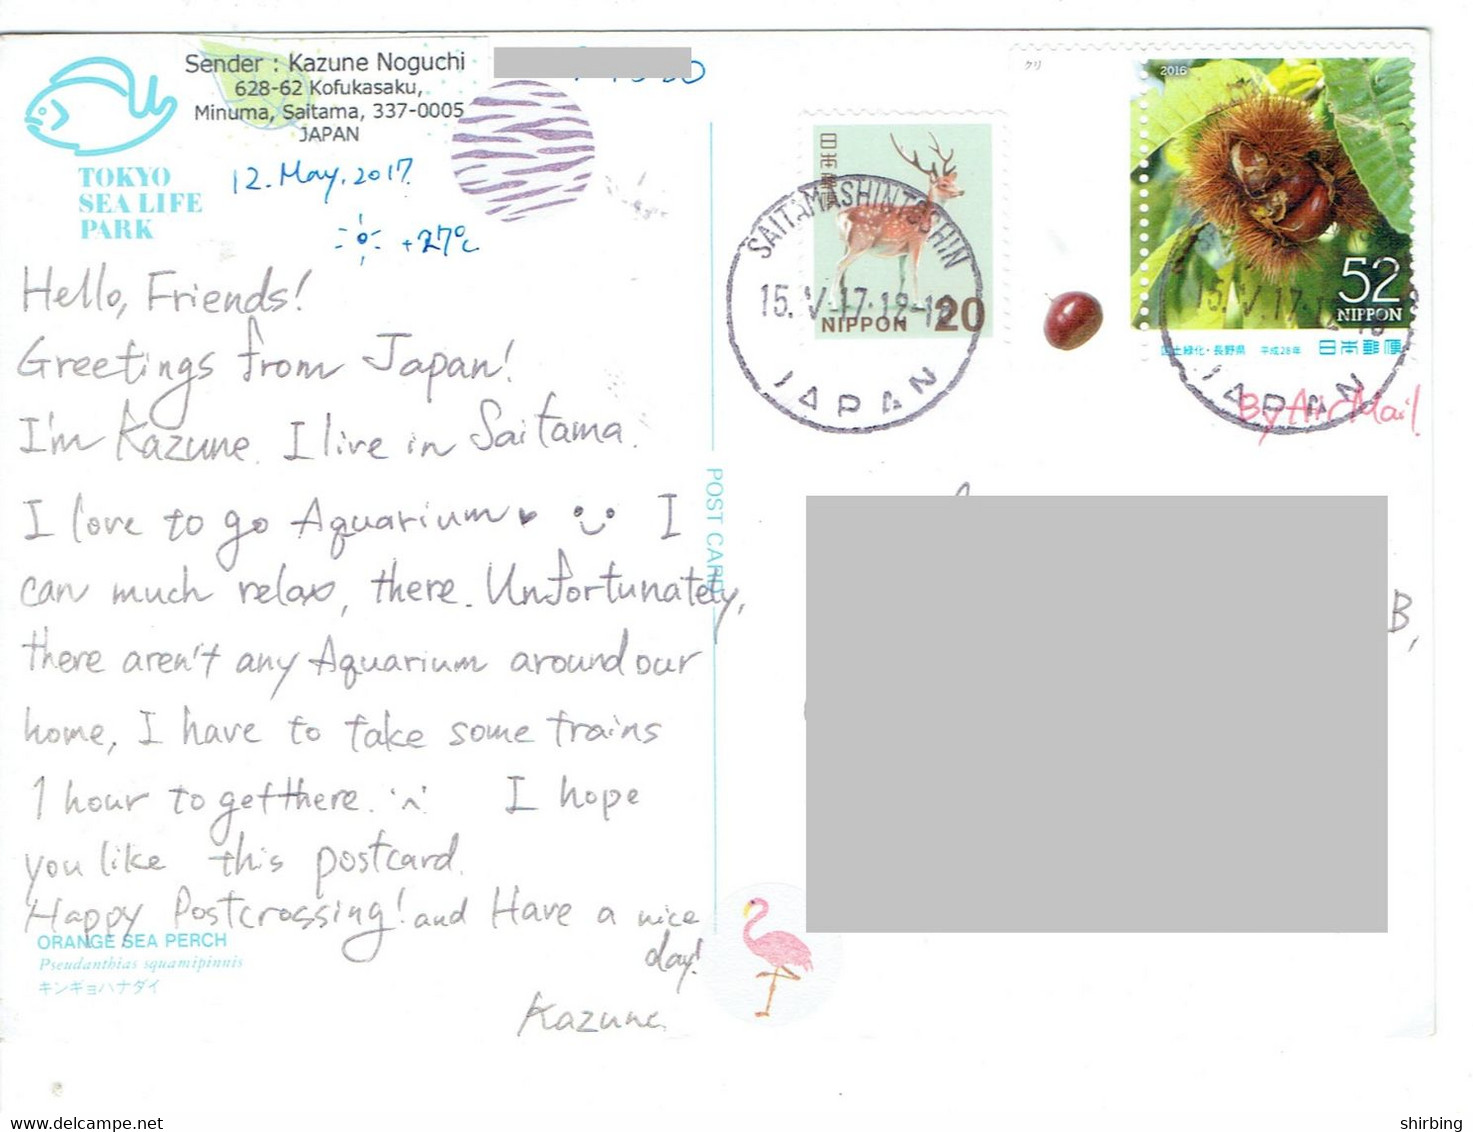 Sender : Kazune Noguchi
628-62 Kofukasaku,
Minuma, Saitama, 337-0005
JAPAN
TOKYO
SEA LIFE
PARK
12. May. 2017
+27℃
Hello, Friends!
Greetings from Japan!
I'm Kazune. I live in Saitama.
I love to go Aquarium♥ I
can much relax, there. Unfortunately,
there aren't any Aquarium around our
home, I have to take some trains
1 hour to get there. I hope
you like this postcard.
Happy Postcrossing! and Have a nice
day!
Kazune
ORANGE SEA PERCH
Pseudanthias squamipinnis
キンギョハナダイ
POST CARD
日本郵便
NIPPON 20
SAITAMASHINTOSHIN
15. V. 17. 12-18
JAPAN
クリ
2016
52
NIPPON
国土緑化・長野県 平成28年 日本郵便
15. V. 17. 12-18
JAPAN
By Air Mail
B,
shirbing